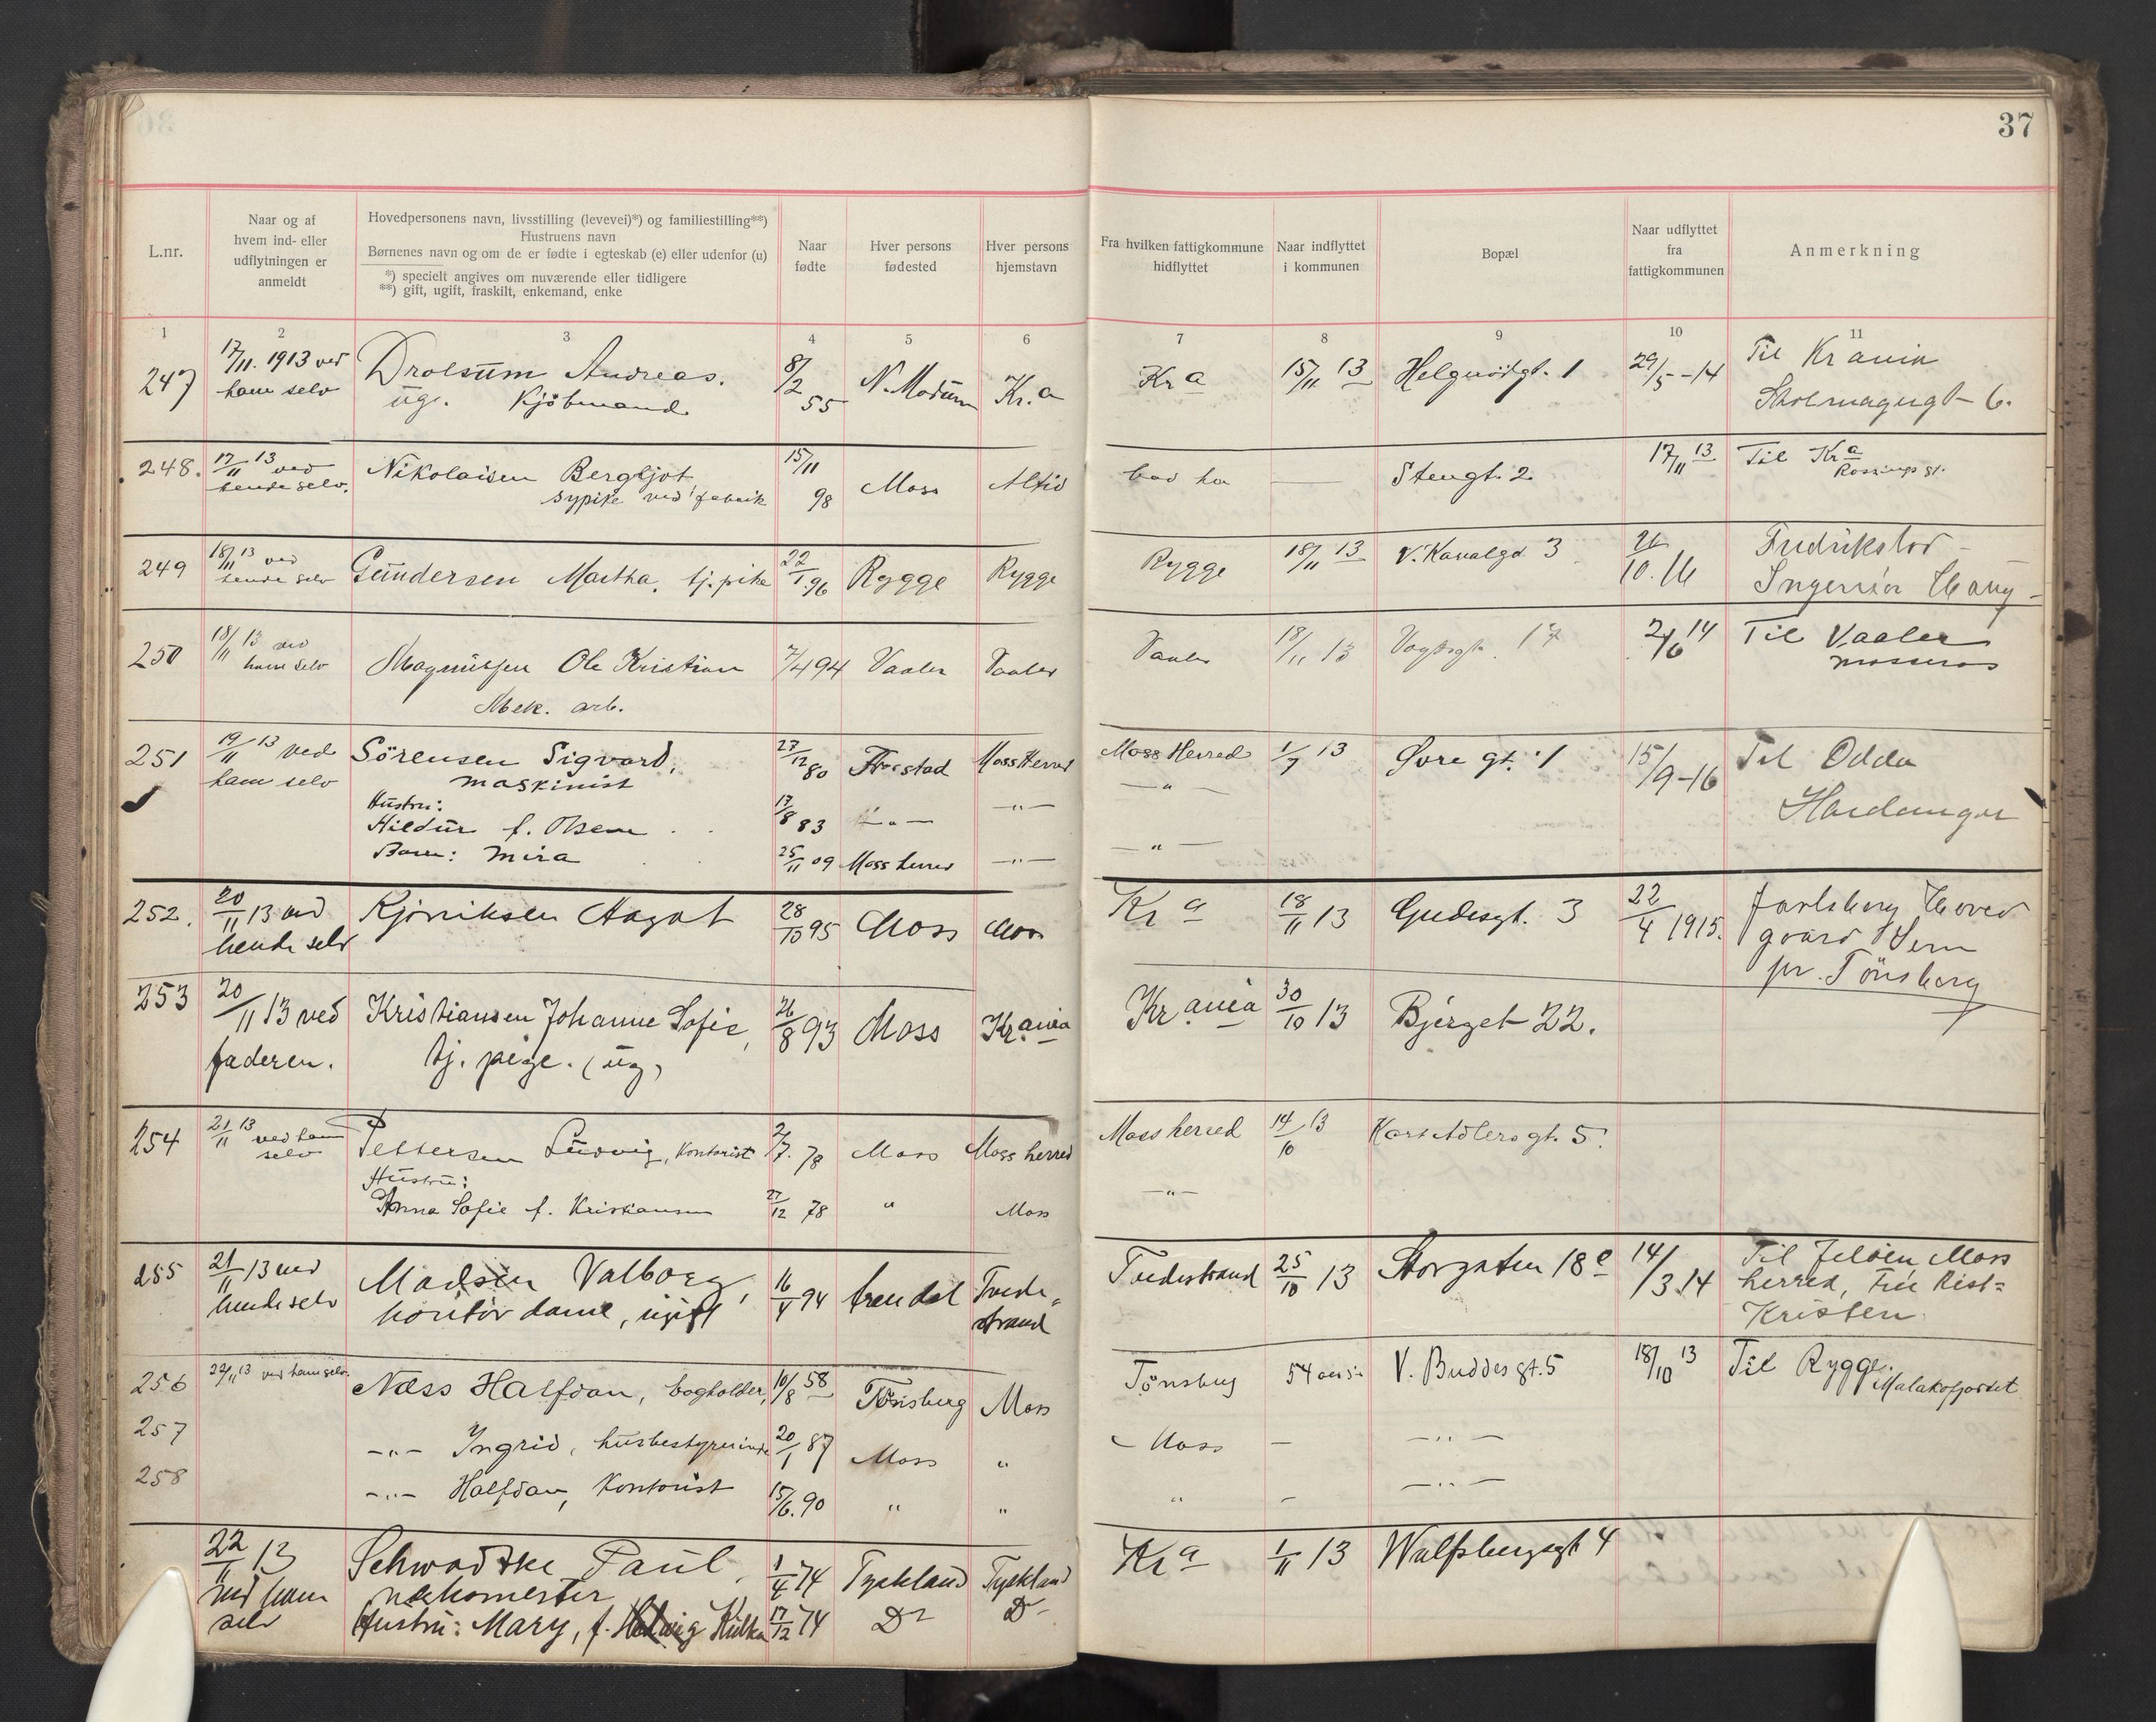 37
L.nr.
Naar og af
hvem ind- eller
udflytningen er
anmeldt
Hovedpersonens navn, livsstilling (levevei)*) og familiestilling**)
Hustruens navn
Børnenes navn og om de er fødte i egteskab (e) eller udenfor (u)
*) specielt angives om nuværende eller tidligere
**) gift, ugift, fraskilt, enkemand, enke
Naar
fødte
Hver persons
fødested
Hver persons
hjemstavn
Fra hvilken fattigkommune
hidflyttet
Naar indflyttet
i kommunen
Bopæl
Naar udflyttet
fra
fattigkommunen
Anmerkning
1 2 3 4 5 6 7 8 9 10 11
247 17/11. 1913 ved Drolsum Andreas. 8/2 55 N. Modum Kr.a Kra 15/11 13 1 29/5-14 Til Krania
ham selv ug. Kjöbmand 6.
248. 17/11 13 ved Nikolaisen Bergljot 15/11 98 Moss Altid Stengt. 2 17/11 13 Til Kra
hende selv. sypike ved fabrik
249 18/11 13 ved Gundersen Martha, tj. pike 22/1.96 Rygge Rygge Rygge 18/11 13 V. Kanalgd 3 10.16 Fredrikstad
hende selv Ingeniör Haug
250 18/11 13 ved Magnussen Ole Kristian 7/4 94 Vaaler Vaaler Vaaler 18/11 13 Vogtsgt. 17 2/6 14 Til Vaaler
ham selv Mek. arb. mosseros
251 19/11 13 ved Sörensen Sigvard, 27/12 80 Frstad Moss Herred Moss Herred 1/7 13 Øvre gt. 1 15/9-16 Til Odda
ham selv maskinist — " — Hardanger
Hustru:
Hildur f. Olsen 17/8 83 — " — — " —
Barn: Mira 25/11 09 Moss herred — " — — " —
252. 20/11 13 ved Aagot 28/10 95 Moss Moss Kra 18/11 13 Gudesgt. 3 22/4 1915. Jarlsberg Hoved
hende selv gaard Sem
pr. Tönsberg
253 20/11 13 ved Kristiansen Johanne Sofie, 26/8 93 Moss Krania Krania 30/10 13 Bjerget 22.
faderen. tj. pige. (ug)
254 21/11 13 ved ham Pettersen Ludvig, kontorist 2/7. 78 Moss Moss herred Moss herred 14/10 13 Kart Adlers gt. 5.
selv Hustru:
Anna Sofie f. Kristiansen 27/12 78 " Moss — " —
255 21/11 13 ved Madsen Valborg, 16/4 94 Arendal Tvede- Tvedestrand 25/10 13 Storgaten 18 e 14/3 14 Til Jelöen Moss
hende selv kontor dame, ugift strand herred, Fru Rist=
Kristen.
256 22/11 13 ved ham selv. Næss Halfdan, bogholder, 10/8 58 Tönsberg Moss Tönsberg 54 V. Buddes gt. 5 18/10 13 Til Rygge.
Malakofjordet
257 — " — Ingrid, husbestyrerinde 20/1 87 Moss " Moss — — " —
258 — " — Halfdan, Kontorist 15/6. 90 " " " — — " —
22/11 13 Schwadtke Paul, 1/4 74 Tyskland Tyskland Kra 1/11 13 Wulfsbergsgt 4
ved ham
selv Hustru: Mary, f. 17/12 74 Do Do